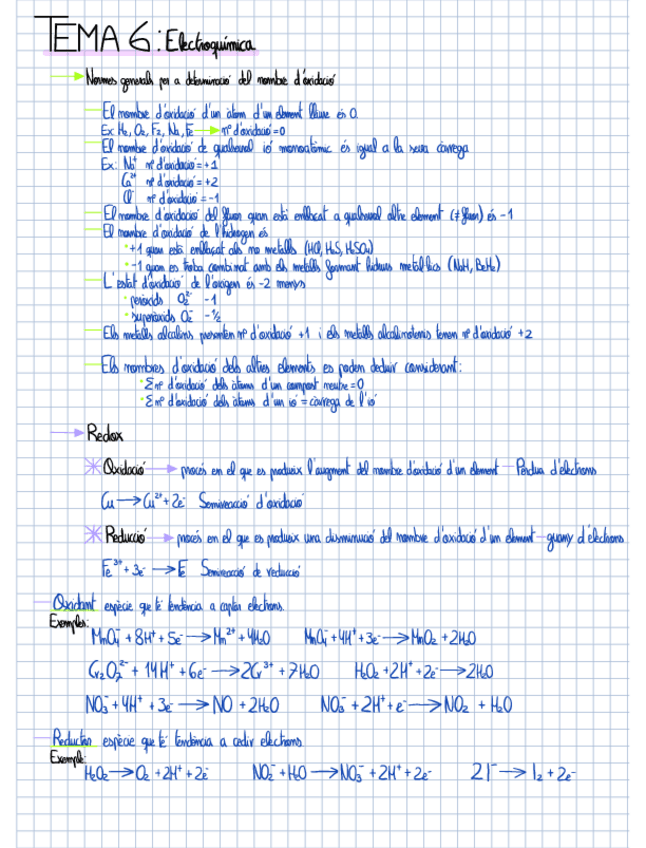 TEMA 6: Electroquímica
Normes generals per a determinació del nombre d'oxidació
El nombre d'oxidació d'un àtom d'un element lliure és 0.
Ex: H₂, O₂, F₂, Na, Fe → nº d'oxidació = 0
El nombre d'oxidació de qualsevol ió monoatòmic és igual a la seua càrrega
Ex: Na⁺ nº d'oxidació = +1
Ca²⁺ nº d'oxidació = +2
Cl⁻ nº d'oxidació = -1
El nombre d'oxidació del fluor quan està enllaçat a qualsevol altre element (≠ fluor) és -1
El nombre d'oxidació de l'hidrogen és
• +1 quan està enllaçat als no metalls (HCl, H₂S, H₂SO₄)
• -1 quan es troba combinat amb els metalls formant hidrurs metàl·lics (NaH, BeH₂)
L'estat d'oxidació de l'oxigen és -2 menys
• peròxids O₂²⁻ -1
• superòxids O₂⁻ -½
Els metalls alcalins presenten nº d'oxidació +1 i els metalls alcalinoterris tenen nº d'oxidació +2
Els nombres d'oxidació dels altres elements es poden deduir considerant:
• Σ nº d'oxidació dels àtoms d'un compost neutre = 0
• Σ nº d'oxidació dels àtoms d'un ió = càrrega de l'ió
→ Redox
Oxidació → procés en el que es produeix l'augment del nombre d'oxidació d'un element — Pèrdua d'electrons
Cu → Cu²⁺ + 2e⁻ Semireacció d'oxidació
Reducció → procés en el que es produeix una disminució del nombre d'oxidació d'un element — guany d'electrons
Fe³⁺ + 3e⁻ → Fe Semireacció de reducció
Oxidant espècie que té tendència a captar electrons.
Exemples:
MnO₄⁻ + 8H⁺ + 5e⁻ → Mn²⁺ + 4H₂O MnO₄⁻ + 4H⁺ + 3e⁻ → MnO₂ + 2H₂O
Cr₂O₇²⁻ + 14H⁺ + 6e⁻ → 2Cr³⁺ + 7H₂O H₂O₂ + 2H⁺ + 2e⁻ → 2H₂O
NO₃⁻ + 4H⁺ + 3e⁻ → NO + 2H₂O NO₃⁻ + 2H⁺ + e⁻ → NO₂ + H₂O
Reductor espècie que té tendència a cedir electrons.
Exemple:
H₂O₂ → O₂ + 2H⁺ + 2e⁻ NO₂⁻ + H₂O → NO₃⁻ + 2H⁺ + 2e⁻ 2I⁻ → I₂ + 2e⁻